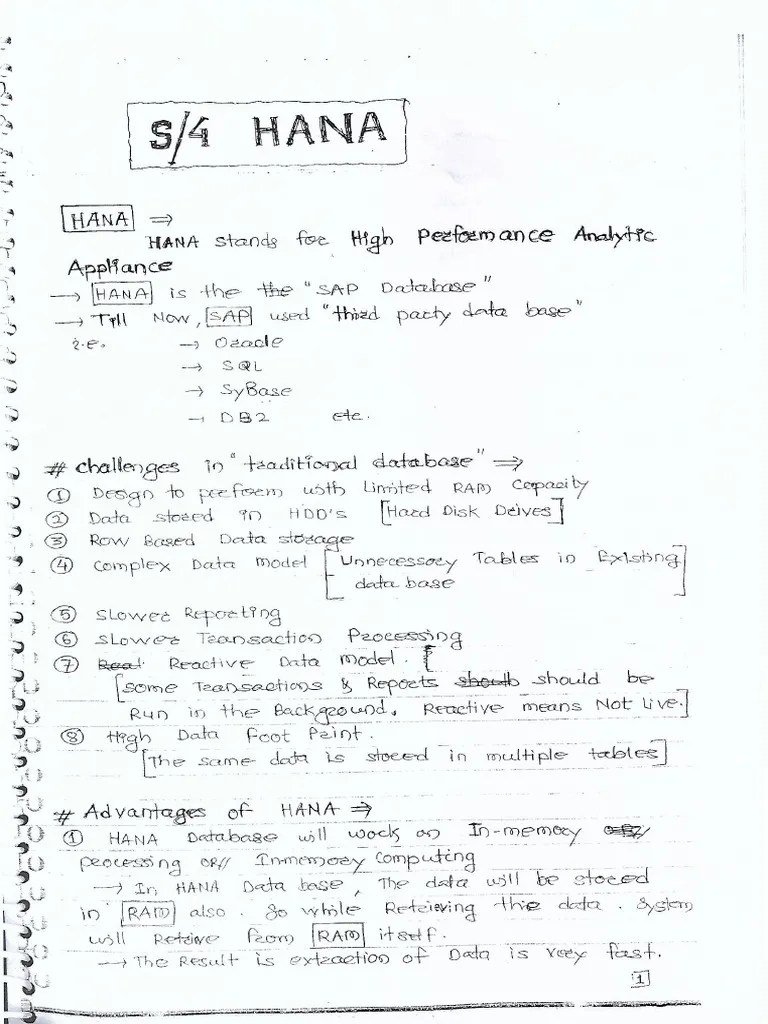 S/4 HANA
HANA ⇒
HANA stands for High Performance Analytic
Appliance
→ HANA is the the "SAP Database"
→ Till Now, SAP used "third party data base"
i.e. → Oracle
→ SQL
→ SyBase
→ DB2 etc.
# challenges in "traditional database" ⇒
① Design to perform with Limited RAM Capacity
② Data stored in HDD's [Hard Disk Drives]
③ Row Based Data storage
④ Complex Data Model [Unnecessory Tables in Existing
data base]
⑤ Slower Reporting
⑥ Slower Transaction Processing
⑦ Real Reactive Data Model. [
[some Transactions & Reports should should be
Run in the Background. Reactive means Not Live.]
⑧ High Data Foot Print.
[The same data is stored in multiple tables]
# Advantages of HANA ⇒
① HANA Database will work on In-memory
processing or// Inmemory Computing
→ In HANA Data base, The data will be stored
in RAM also. So while Retrieving the data. System
will Retrive from RAM itself.
→ The Result is extraction of Data is very fast.
1